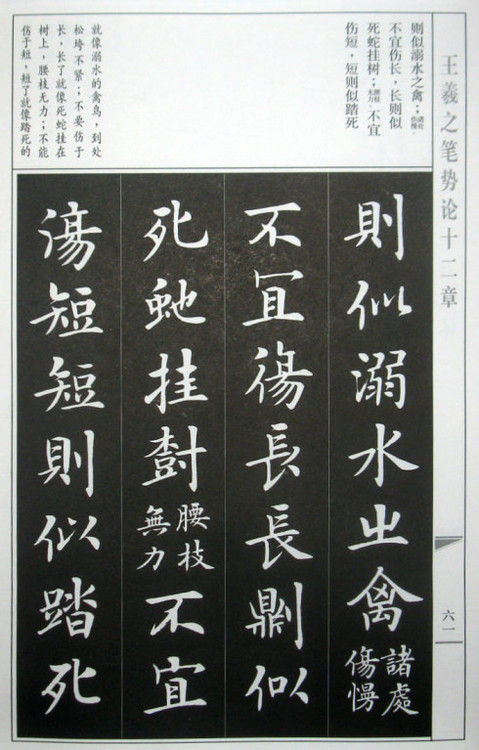 王羲之笔势论十二章
六一
则似溺水之禽；诸处伤慢。
不宜伤长，长则似
死蛇挂树；腰枝无力。不宜
伤短，短则似踏死
就像溺水的禽鸟，到处
松垮不紧；不要伤于
长，长了就像死蛇挂在
树上，腰枝无力；不能
伤于短，短了就像踏死的
則似溺水之禽諸處傷慢
不宜傷長長則似
死虵挂樹腰枝無力不宜
傷短短則似踏死